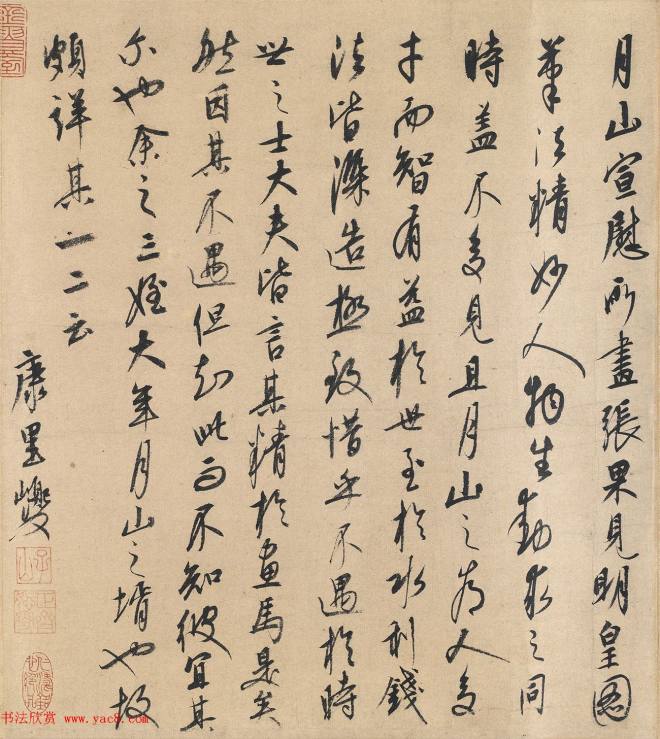 月山宣慰所畫張果見明皇圖
筆法精妙人物生動求之同
時蓋不多見且月山之為人多
才而智有益於世至於水利錢
法皆深造極致惜乎不遇於時
世之士大夫皆言其精於畫馬是矣
然因其不遇但知此而不知彼宜其
尔也余之三姪大年月山之壻也故
頗詳其一二云
康里巎
书法欣赏 www.yac8.com